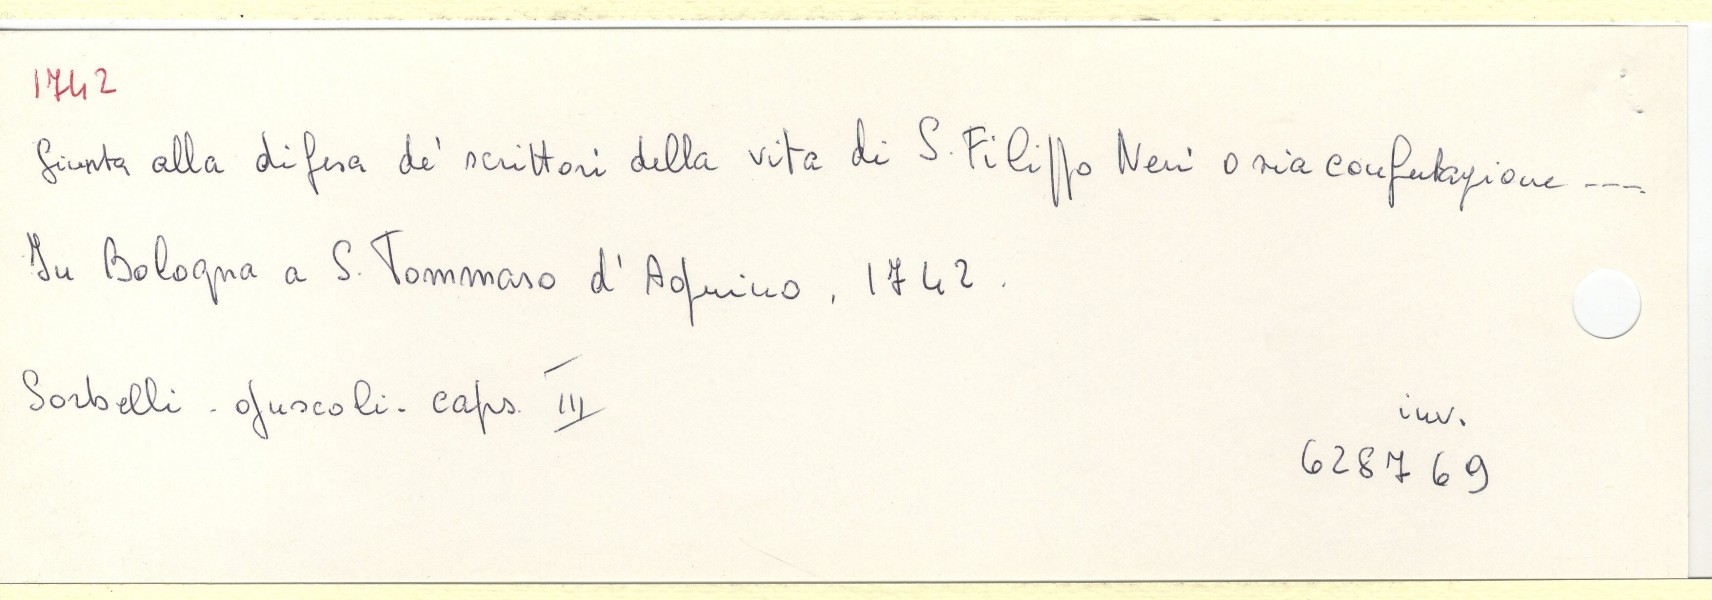 1742
Giunta alla difesa de' scrittori della vita di S. Filippo Neri o sia confutazione ----
In Bologna a S. Tommaso d'Aquino, 1742.
Sorbelli - opuscoli - caps. III
inv.
628769